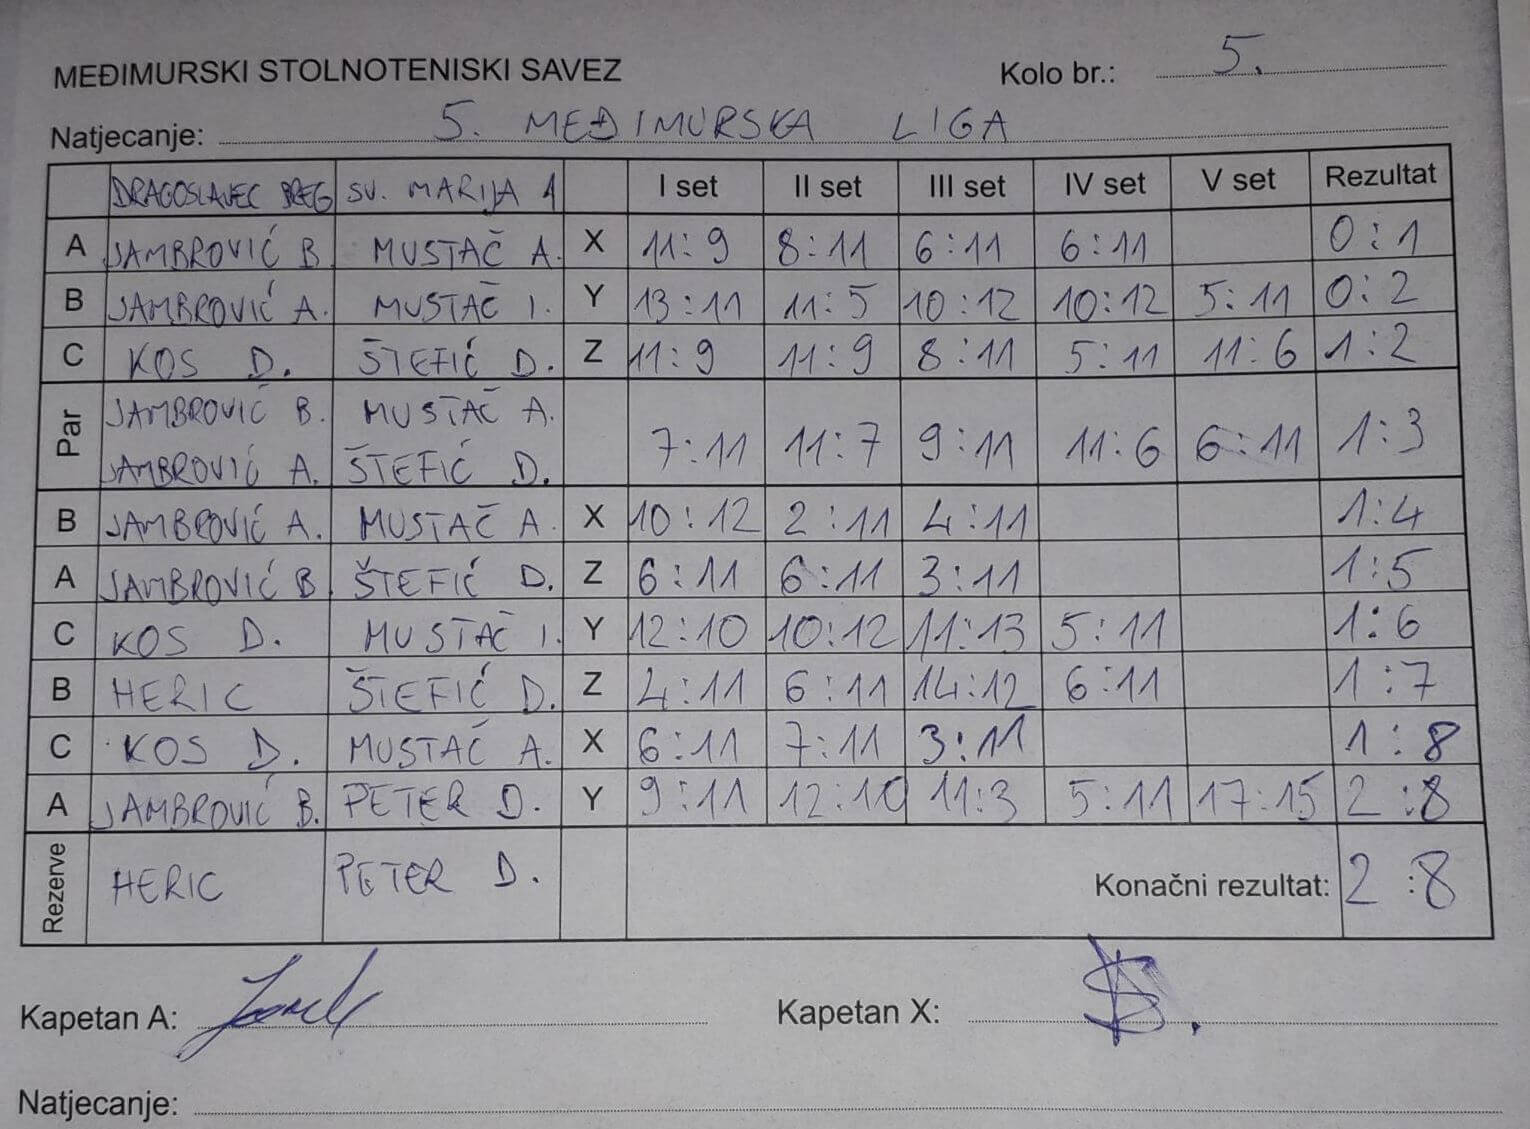 MEĐIMURSKI STOLNOTENISKI SAVEZ Kolo br.: 5.
Natjecanje: 5. MEĐIMURSKA LIGA
DRAGOSLAVEC BREG SV. MARIJA A I set II set III set IV set V set Rezultat
A JAMBROVIĆ B MUSTAČ A. X 11:9 8:11 6:11 6:11 0:1
B JAMBROVIĆ A. MUSTAČ I. Y 13:11 11:5 10:12 10:12 5:11 0:2
C KOS D. ŠTEFIĆ D. Z 11:9 11:9 8:11 5:11 11:6 1:2
Par JAMBROVIĆ B. MUSTAČ A.
JAMBROVIĆ A. ŠTEFIĆ D. 7:11 11:7 9:11 11:6 6:11 1:3
B JAMBROVIĆ A. MUSTAČ A. X 10:12 2:11 4:11 1:4
A JAMBROVIĆ B. ŠTEFIĆ D. Z 6:11 6:11 3:11 1:5
C KOS D. MUSTAČ I. Y 12:10 10:12 11:13 5:11 1:6
B HERIC ŠTEFIĆ D. Z 4:11 6:11 14:12 6:11 1:7
C KOS D. MUSTAČ A. X 6:11 7:11 3:11 1:8
A JAMBROVIĆ B. PETER D. Y 9:11 12:10 11:3 5:11 17:15 2:8
Rezerve HERIC PETER D. Konačni rezultat: 2:8
Kapetan A: Kapetan X:
Natjecanje: